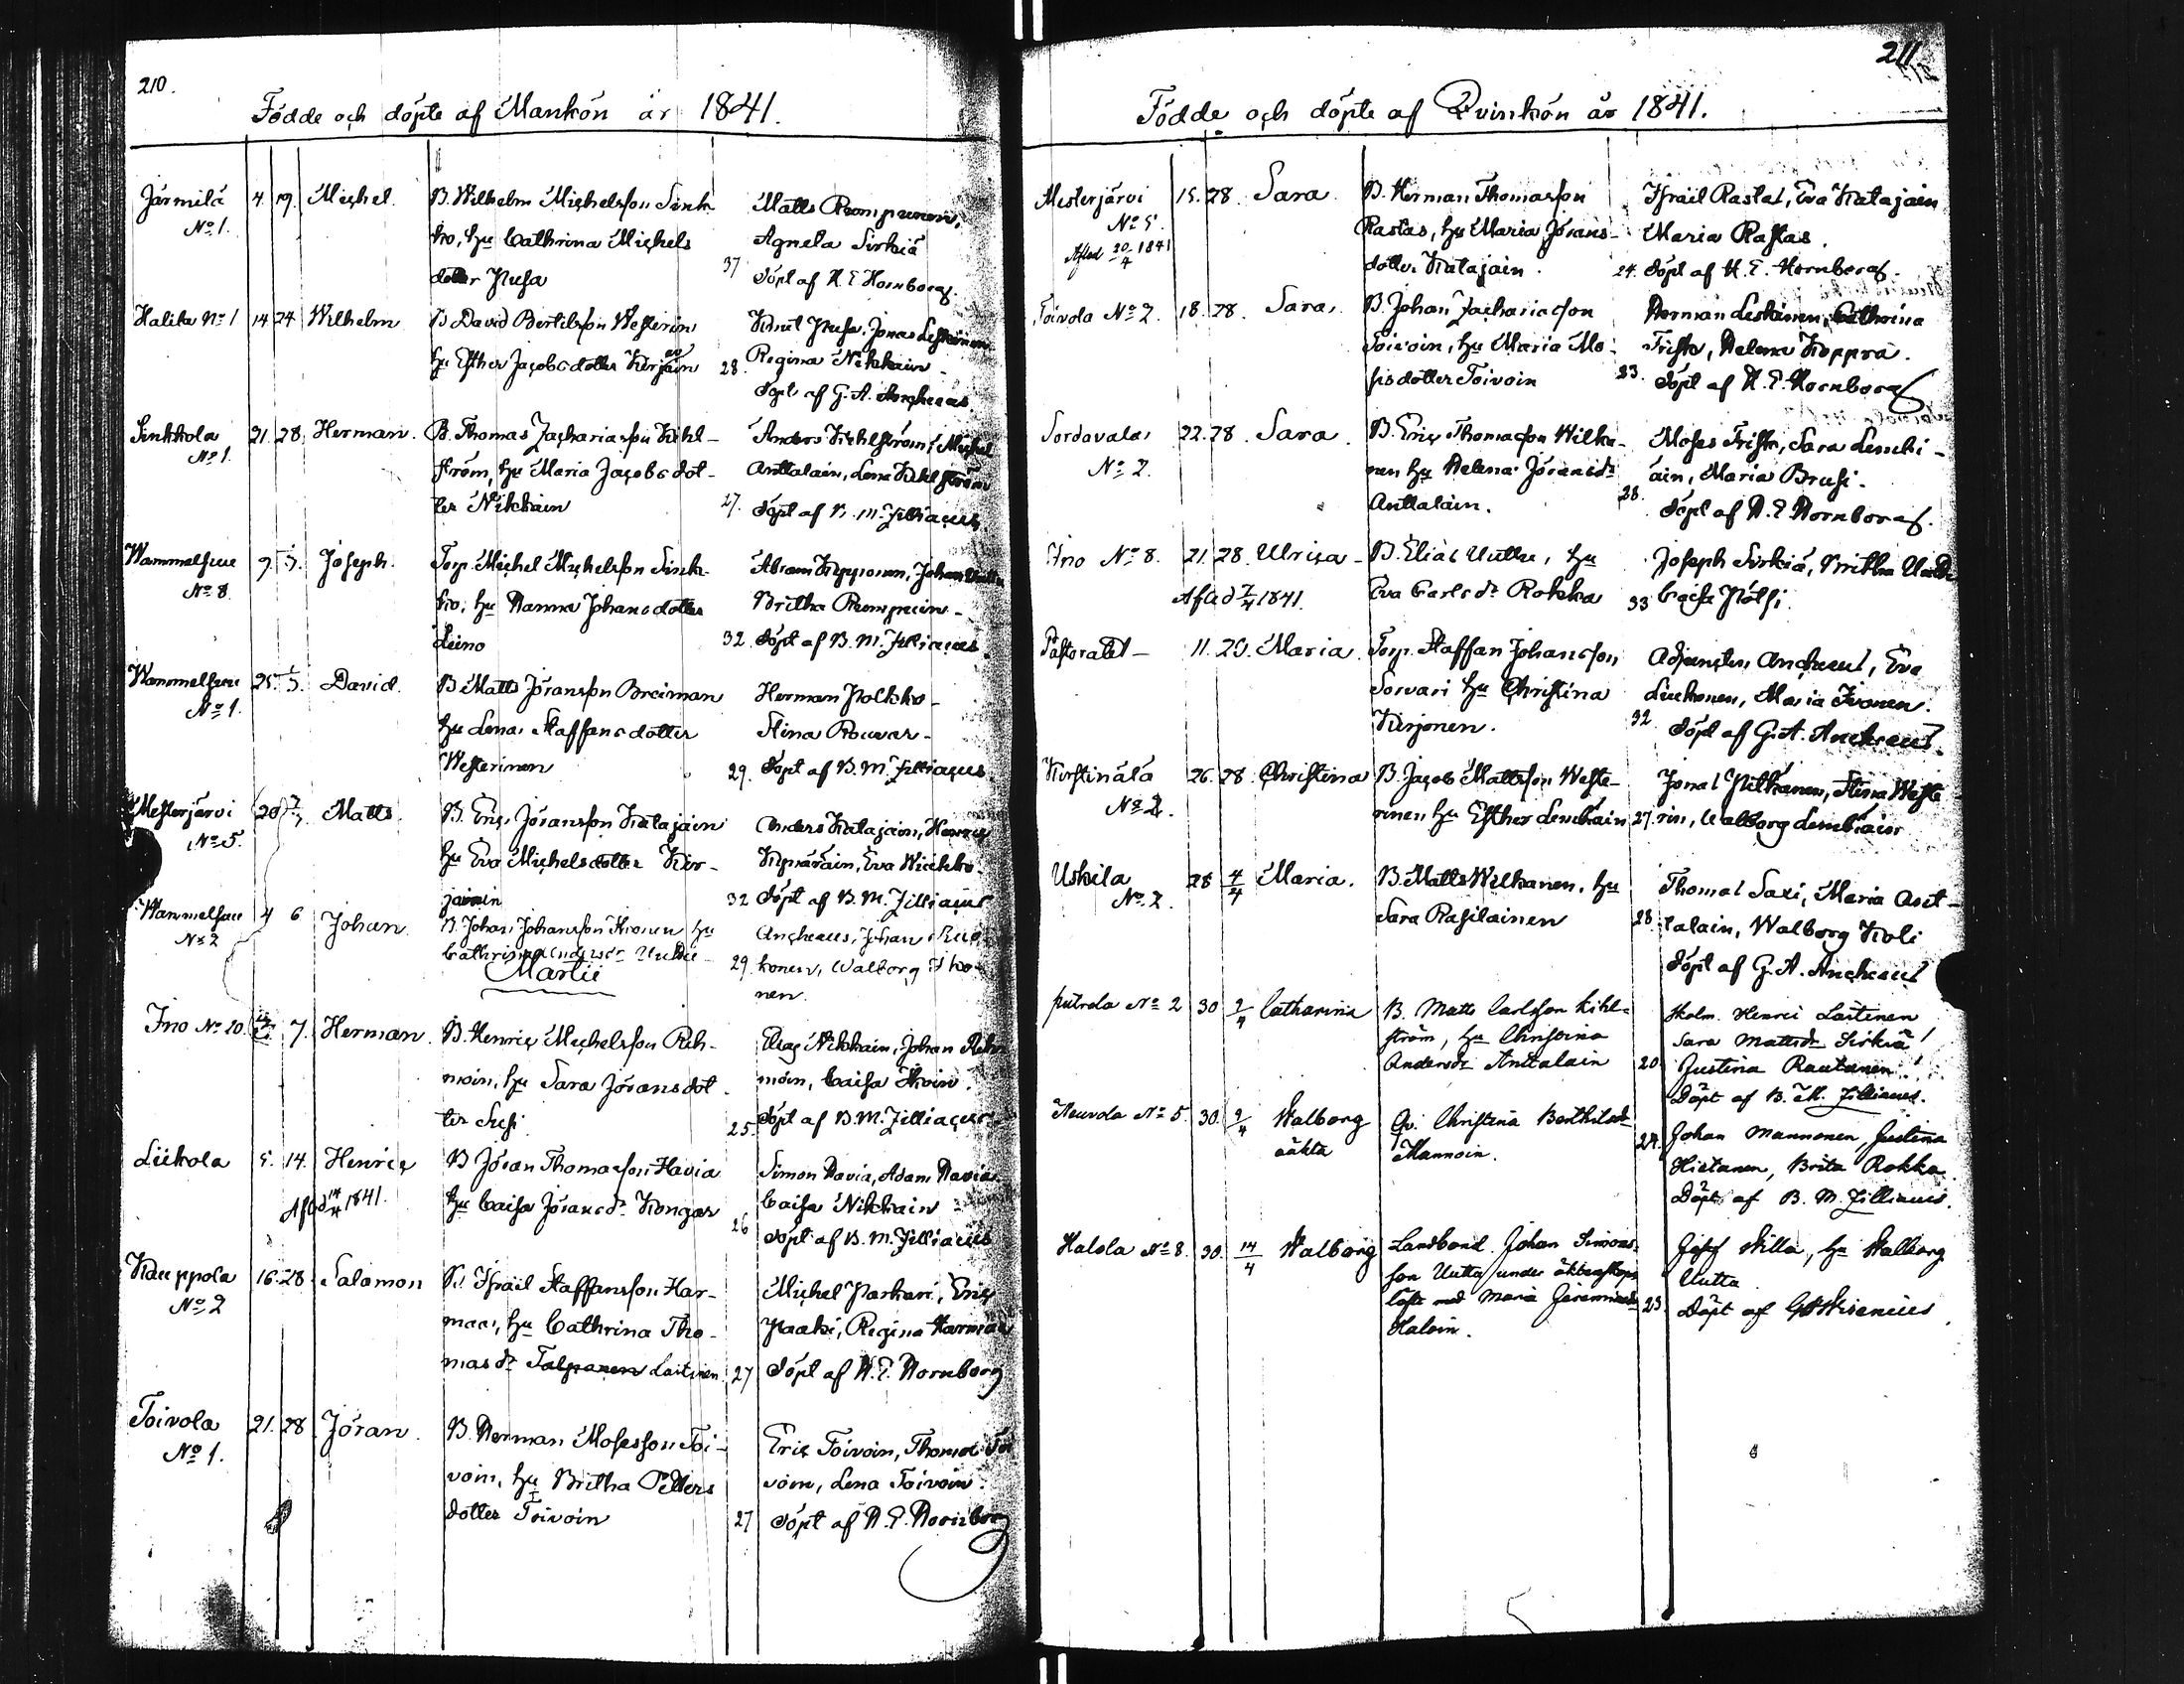 210.
Födde och döpte af Mankön år 1841.
Järmilä 4. 19. Michel. B. Wilhelm Michelsson Sink
No 1.
ko, hu Cathrina Michels
dotter Pusa
Matts Rompunen,
Agneta Sirkiä
37 döpt af H. E. Hornborg.
Halila No 1 14 24 Wilhelm B David Bertilsson Westerin
hu Esther Jacobsdotter Kirjain
Knut Pusa, Jonas Leskinen
28. Regina Nikkain
Döpt af G. A. Ancheus
Sinkkola 21. 28. Herman. B. Thomas Zachariasson Kihl-
No 1.
ström, hu Maria Jacobsdot-
ter Nikkain
Anders Kihlström, Michel
Anttalain, Lena Kihlström
27. döpt af B. M. Zilliacus
Wammelsuu Joseph. Torp. Michel Michelsson Sink-
No 8
ko, hu Hanna Johansdotter
Leino
Abram Kopponen, Johan
Britha Rompuin
32. döpt af B. M. Zilliacus
Wammelsuu 25. David. B Matts Jöransson Breiman
No 1.
hu Lena Staffansdotter
Westerinen
Herman Polkko
Stina Rouvar
29. döpt af B. M. Zilliacus
Mesterjärvi 20 Matts B. Eric Jöransson Katajain
No 5.
hu Eva Michelsdotter Kir-
jainin
Anders Katajain,
Eva Wickko
32 döpt af B. M. Zilliacus
Wammelsuu 4 6 Johan. B. Johan Johansson Ikonen hu
No 2
Cathrina
Ancheus, Johan
29. konen, Walborg Iko-
nen.
Martii
Ino No 20. 7. Herman. B. Henric Michelsson Reh-
moin, hu Sara Jöransdot-
ter Susi
Nikkain, Johan Reh
moin, Caisa
25. döpt af B. M. Zilliacus
Liikola 5. 14. Henric B Jöran Thomasson Havia
Afled 14/4 1841.
hu Caisa Jöransdr Kongas
Simon Havia, Adam Havia
Caisa Nikkain
26 döpt af B. M. Zilliacus
Kauppola 16. 28. Salamon B. Israil Staffansson Har-
No 2
maa, hu Cathrina Tho-
masdr Talpanen Laitinen
Michel Parkari, Eric
Paaki, Regina Harmaa
27 döpt af H. E. Hornborg
Toivola 21. 28 Jöran. B. Herman Mosesson Toi-
No 1.
voin, hu Britha Petters
dotter Toivoin
Eric Toivoin, Thomas Toi
voin, Lena Toivoin
27 döpt af H. E. Hornborg
211
Födde och döpte af Qvinkön år 1841.
Mesterjärvi 15. 28 Sara. B. Herman Thomasson
No 5.
Afled 20/4 1841
Rastas, hu Maria Jörans-
dotter Katajain.
Israil Rastas, Eva Katajain
Maria Rastas.
24. döpt af H. E. Hornborg.
Toivola No 2. 18. 28. Sara. B. Johan Zachariasson
Toivoin, hu Maria Mo-
sisdotter Toivoin
Herman Leskinen, Cathrina
Trisk, Helena Koppra.
33. döpt af H. E. Hornborg
Sordavala 22. 28. Sara. B. Eric Thomasson Wilka-
No 2.
nen hu Helena Jöransdr
Anttalain.
Moses Trisk, Sara Lembi-
äin, Maria Brusi.
28. döpt af H. E. Hornborg.
Ino No 8. 21. 28. Ulrica B. Elias Uutta, hu
Afled 7/4 1841.
Eva Carlsdr Rokka
Joseph Sirkiä, Britha
33 Caisa Pölsi.
Pastoratet 11. 20. Maria. Torp. Staffan Johansson
Sorvari hu Christina
Kirjonen.
Adjuncten Ancheus, Eva
Liukonen, Maria Ivonen.
32. döpt af G. A. Ancheus.
Kirstinälä 26. 28. Christina B. Jacob Mattsson Weste-
No 2.
rinen, hu Esther Lembiäin
Jonas Pitkänen, Stina Weste
27. rin, Walborg Lembiäin
Uskila 28 4/4 Maria. B. Matts Wilkanen, hu
No 2.
Sara Rasilainen
Thomas Saxi, Maria Ant-
28. talain, Walborg Koli
döpt af G. A. Ancheus
Putrola No 2 30 9/4 Catharina B. Matts Carlsson Kihl-
ström, hu Christina
Andersdr Anttalain
Skolm. Henric Laitinen
Sara Mattsdr Sirkiä
20 Justina Rautanen
Döpt af B. M. Zilliacus.
Neuvola No 5. 30. 9/4 Walborg Qv. Christina Berthilsdr
oäkta Mannoin.
24. Johan Mannonen, Justina
Hietanen, Brita Rokka
Döpt af B. M. Zilliacus.
Halola No 8. 30. 14/4 Walborg Landbond. Johan Simons-
son Uutta under äktenskaps
löfte med Maria Jeremiasdr
Haloin.
Josef Killa, hu Walborg
Uutta
23. Döpt af